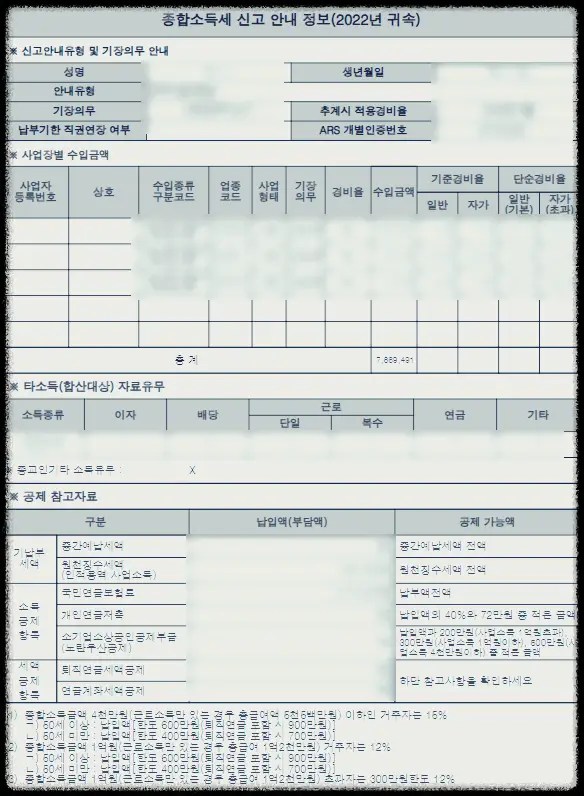 종합소득세 신고 안내 정보(2022년 귀속)
※ 신고안내유형 및 기장의무 안내
성명 생년월일
안내유형
기장의무 추계시 적용경비율
납부기한 직권연장 여부 ARS 개별인증번호
※ 사업장별 수입금액
사업자 등록번호 상호 수입종류 구분코드 업종 코드 사업 형태 기장 의무 경비율 수입금액 기준경비율 단순경비율
일반 자가 일반 (기본) 자가 (초과)
총 계 7,669,491
※ 타소득(합산대상) 자료유무
소득종류 이자 배당 근로 연금 기타
단일 복수
※ 종교인기타 소득유무 : X
※ 공제 참고자료
구분 납입액(부담액) 공제 가능액
기납부 세액 중간예납세액 중간예납세액 전액
원천징수세액 (인적용역 사업소득) 원천징수세액 전액
소득 공제 항목 국민연금보험료 납부액전액
개인연금저축 납입액의 40%와 72만원 중 적은 금액
소기업소상공인공제부금 (노란우산공제) 납입액과 200만원(사업소득 1억원초과),
300만원(사업소득 1억원이하), 500만원(사
업소득 4천만원이하) 중 적은 금액
세액 공제 항목 퇴직연금세액공제 하단 참고사항을 확인하세요
연금계좌세액공제
1) 종합소득금액 4천만원(근로소득만 있는 경우 총급여액 5천5백만원) 이하인 거주자는 15%
ㄱ) 50세 이상 : 납입액[한도 600만원(퇴직연금 포함 시 900만원)]
ㄴ) 50세 미만 : 납입액[한도 400만원(퇴직연금 포함 시 700만원)]
2) 종합소득금액 1억원(근로소득만 있는 경우 총급여 1억2천만원) 거주자는 12%
ㄱ) 50세 이상 : 납입액[한도 600만원(퇴직연금 포함 시 900만원)]
ㄴ) 50세 미만 : 납입액[한도 400만원(퇴직연금 포함 시 700만원)]
3) 종합소득금액 1억원(근로소득만 있는 경우 총급여 1억2천만원) 초과자는 300만원한도 12%